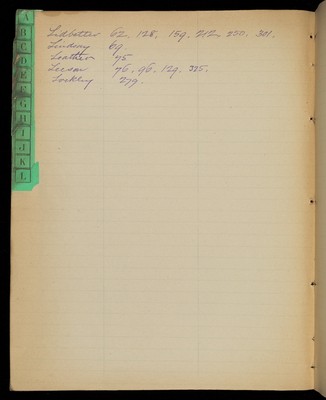 A
B
C
D
E
F
G
H
I
J
K
L
Lidbetter 62, 128, 159, 212, 220, 301.
Lindsay 69.
Leather 75.
Leeson 76, 96, 129, 385.
Lockley 279.